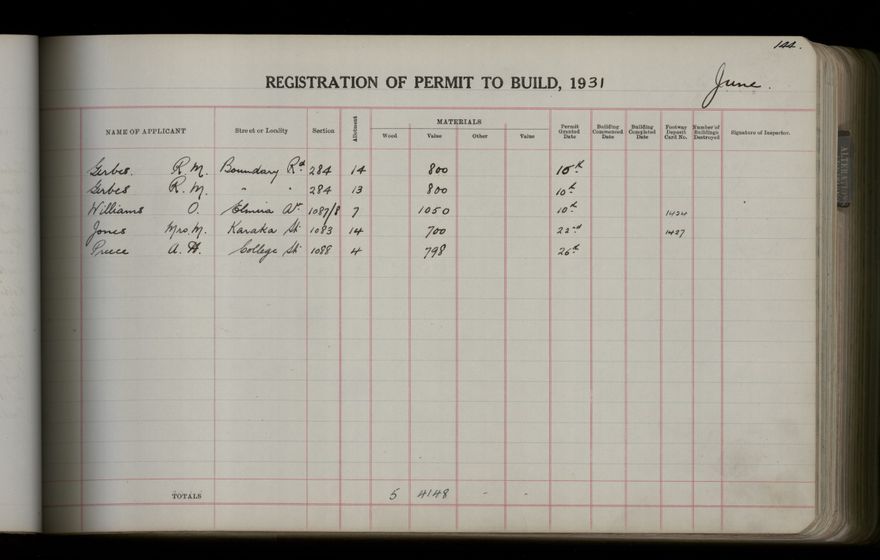 144.
REGISTRATION OF PERMIT TO BUILD, 1931 June.
NAME OF APPLICANT Street or Locality Section Allotment MATERIALS Wood Value Other Value Permit Granted Date Building Commenced Date Building Completed Date Footway Deposit Card No. Number of Buildings Destroyed Signature of Inspector.
Gerbes. R. M. Boundary Rd 284 14 800 10th
Gerbes R. M. " " 284 13 800 10th
Williams O. Elmira Av. 1087/8 7 1050 10th 1424
Jones Mrs. M. Karaka St 1083 14 700 22nd 1427
Preece A. H. College St 1088 4 798 26th
TOTALS 5 4148 - -